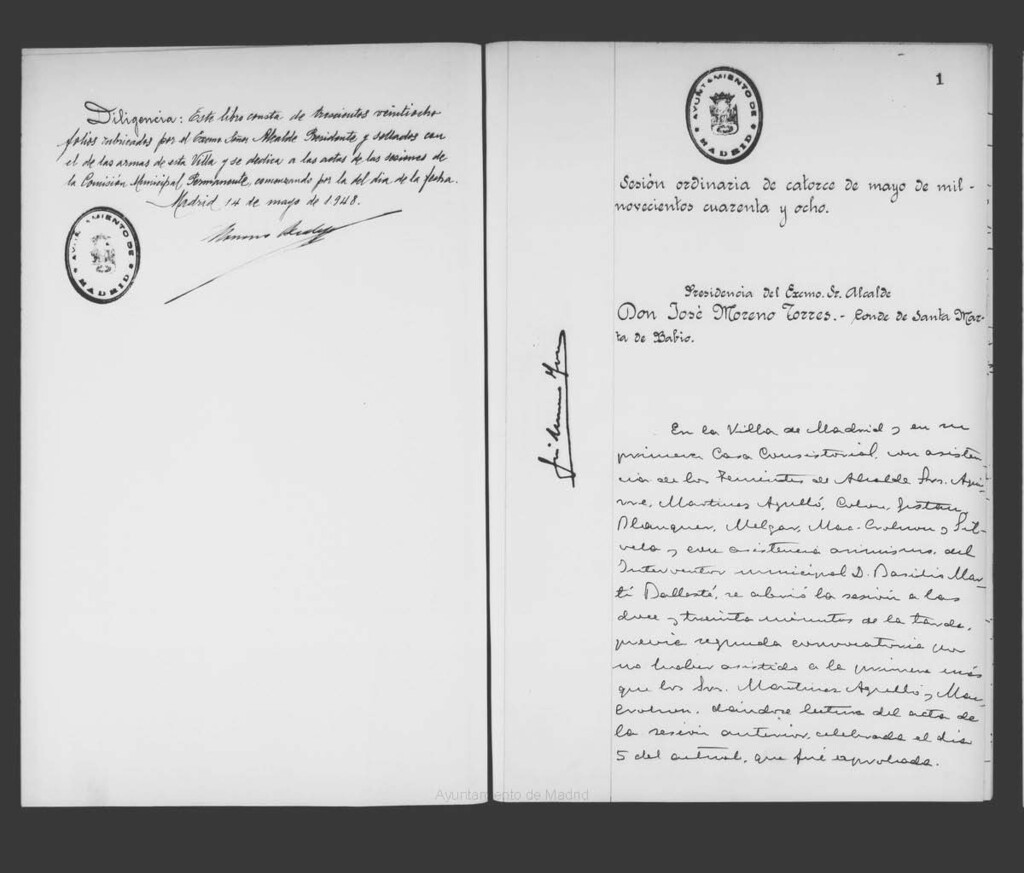 Diligencia: Este libro consta de trescientos veintiocho
folios rubricados por el Excmo Señor Alcalde Presidente y sellados con
el de las armas de esta Villa y se dedica a las actas de las sesiones de
la Comisión Municipal Permanente, comenzando por la del día de la fecha.
Madrid 14 de mayo de 1948.
AYUNTAMIENTO DE MADRID
1
AYUNTAMIENTO DE MADRID
Sesión ordinaria de catorce de mayo de mil-
novecientos cuarenta y ocho.
Presidencia del Excmo. Sr. Alcalde
Don José Moreno Torres.- Conde de Santa Mar-
ta de Babio.
En la Villa de Madrid y en su
primera Casa Consistorial, con asisten-
cia de los Tenientes de Alcalde Sres. Agui-
rre, Martinez Agulló, Colon, Gistau,
Blanquer, Melgar, Mac-Crohon y Sil-
vela y con asistencia asimismo, del
Interventor municipal D. Basilio Mar-
tí Ballesté, se abrió la sesión a las
doce y treinta minutos de la tarde,
previa segunda convocatoria por
no haber asistido a la primera más
que los Sres. Martinez Agulló y Mac-
Crohon, dándose lectura del acta de
la sesión anterior, celebrada el dia
5 del actual, que fué aprobada.
Ayuntamiento de Madrid